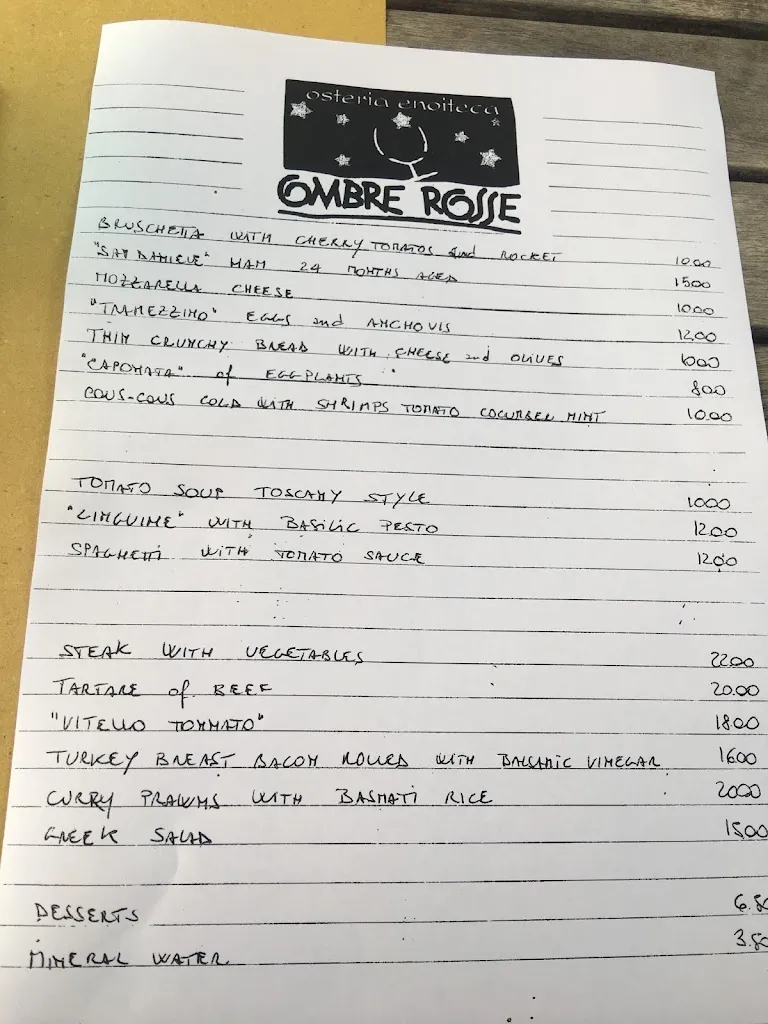 osteria enoiteca
OMBRE ROSSE
BRUSCHETTA WITH CHERRY TOMATOS and ROCKET 10.00
"SAN DANIELE" HAM 24 MONTHS AGED 1500
MOZZARELLA CHEESE 1000
"TRAMEZZINO" EGGS and ANCHOVIS 12.00
THIN CRUNCHY BREAD WITH CHEESE and OLIVES 1000
"CAPONATA" of EGGPLANTS 800
COUS-COUS COLD WITH SHRIMPS TOMATO COCUMBER MINT 10.00
TOMATO SOUP TOSCANY STYLE 1000
"LINGUINE" WITH BASILIC PESTO 12.00
SPAGHETTI WITH TOMATO SAUCE 12.00
STEAK WITH VEGETABLES 22.00
TARTARE of BEEF 20.00
"VITELLO TONNATO" 18.00
TURKEY BREAST BACON ROLLED WITH BALSAMIC VINEGAR 1600
CURRY PRAWNS WITH BASMATI RICE 2000
GREEK SALAD 15.00
DESSERTS 6.50
MINERAL WATER 3.50